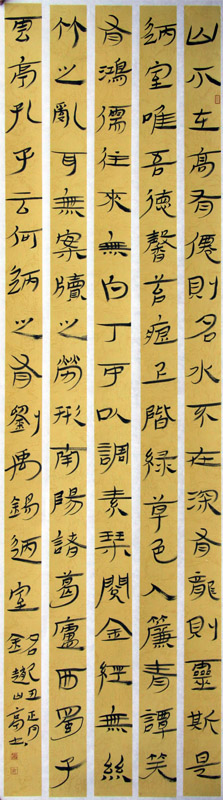 山不在高有僊則名水不在深有龍則靈斯是
陋室唯吾德馨苔痕上階綠草色入簾青譚笑
有鴻儒往來無白丁可以調素琴閱金經無絲
竹之亂耳無案牘之勞形南陽諸葛廬西蜀子
雲亭孔子云何陋之有劉禹錫陋室銘
己丑正月
趙山高士